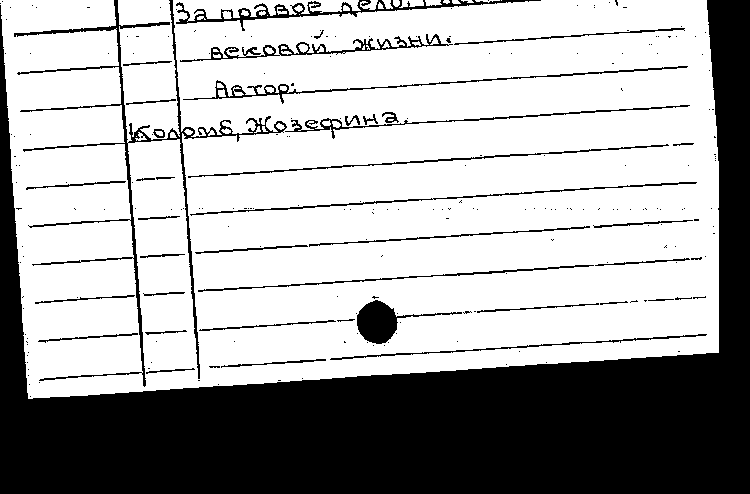 За правое дело.
вековой жизни.
Автор:
Коломб, Жозефина.